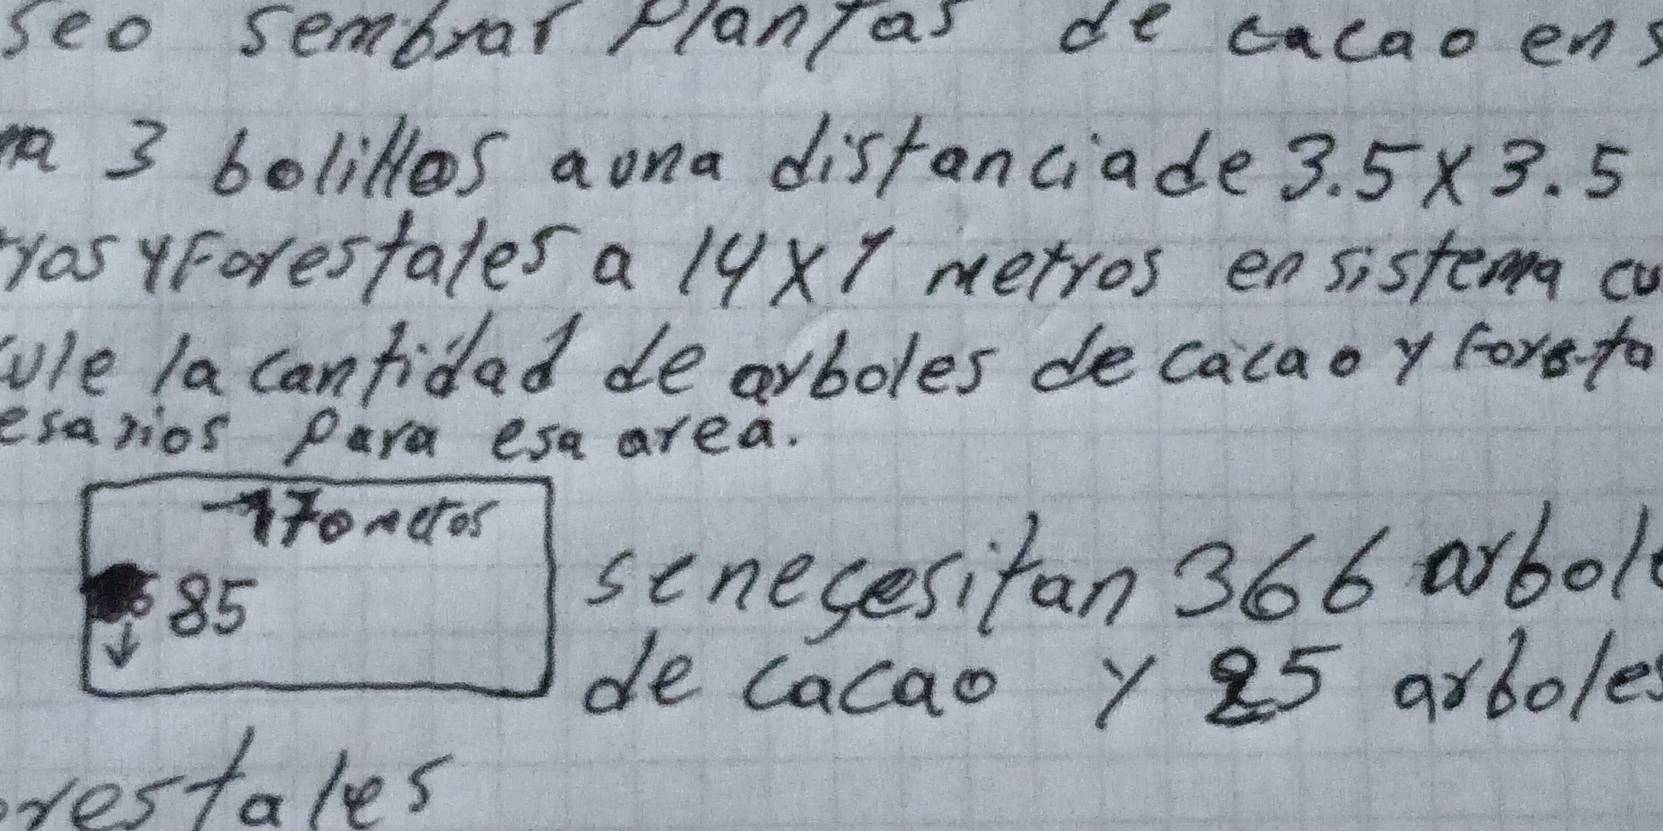 seo sembrar plantas de cacao en s
ma 3 bolillos a una distancia de 3.5 x 3.5
tros y Forestales a 14 x 7 metros en sistema cu
cule la cantidad de arboles de cacao y foresta
esarios para esa area.
170 metos
85
se necesitan 366 arbole
de cacao y 25 arboles
orestales